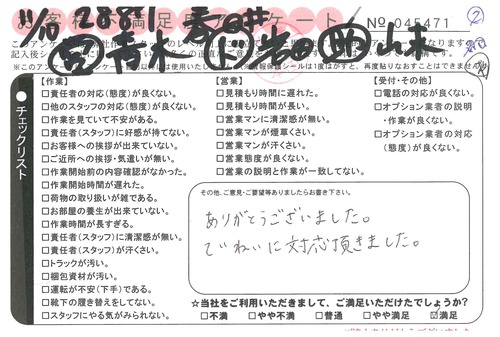 11/10 28881
No 045471
②
※このアンケート
チェックリスト
【作業】
□責任者の対応(態度)が良くない。
□他のスタッフの対応(態度)が良くない。
□作業を見ていて不安がある。
□責任者(スタッフ)に好感が持てない。
□お客様への挨拶が出来ていない。
□ご近所への挨拶・気遣いが無い。
□作業開始前の内容確認がなかった。
□作業開始時間が遅れた。
□荷物の取り扱いが雑である。
□お部屋の養生が出来ていない。
□作業時間が長すぎる。
□責任者(スタッフ)に清潔感が無い。
□責任者(スタッフ)が汗くさい。
□トラックが汚い。
□梱包資材が汚い。
□運転が不安(下手)である。
□靴下の履き替えをしてない。
□スタッフにやる気がみられない。
【営業】
□見積もり時間に遅れた。
□見積もり時間が長い。
□営業マンに清潔感が無い。
□営業マンが煙草くさい。
□営業マンが汗くさい。
□営業態度が良くない。
□営業の説明と作業が一致してない。
【受付・その他】
□電話の対応が良くない。
□オプション業者の説明
・作業が良くない。
□オプション業者の対応
(態度)が良くない。
その他、ご意見・ご要望等ありましたらお書き下さい。
ありがとうございました。
ていねいに対応頂きました。
☆当社をご利用いただきまして、ご満足いただけたでしょうか?
□不満 □やや不満 □普通 □やや満足 ☑満足